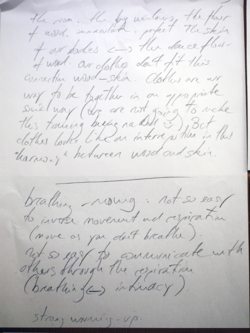 the room, the big windows, the floor
of wood immaculate. protect the skin
of our bodies <-> the dance floor
of wood our clothes don't fit this
connection wood-skin. Clothes are our
way to be together in an appropriate
social way (we are not going to make
this training being naked :)), but
clothes looks like an interruption in this
"harmony" between wood and skin.
breathing - moving: not so easy
to involve movement and respiration
(move as you don't breathe).
not so easy to communicate with
others through the respiration
(breathing <-> intimacy)
strong warming-up.